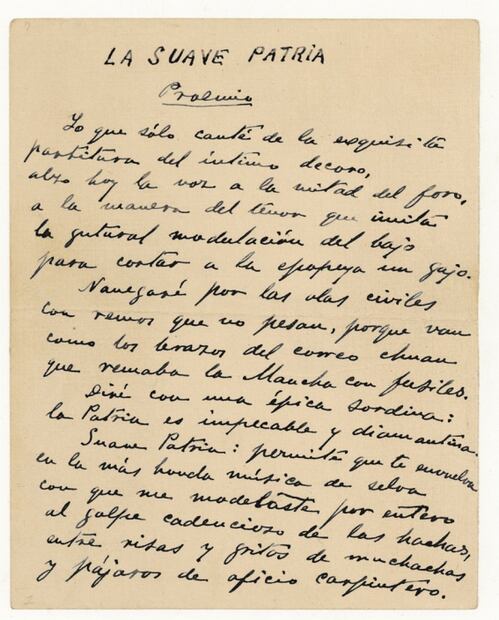 LA SUAVE PATRIA
Proemio
Yo que sólo canté de la exquisita
partitura del íntimo decoro,
alzo hoy la voz a la mitad del foro,
a la manera del tenor que imita
la gutural modulación del bajo
para cortar a la epopeya un gajo.
Navegaré por las olas civiles
con remos que no pesan, porque van
como los brazos del correo chuan
que remaba la Mancha con fusiles.
Diré con una épica sordina:
la Patria es impecable y diamantina.
Suave Patria: permite que te envuelva
en la más honda música de selva
con que me modelaste por entero
al golpe cadencioso de las hachas,
entre risas y gritos de muchachas
y pájaros de oficio carpintero.